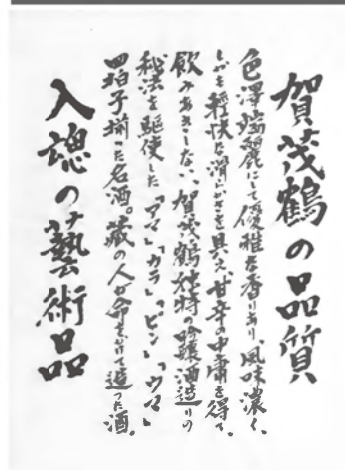 賀茂鶴の品質
色澤端麗にして優雅な香りあり、風味濃く、
しかも軽快な滑らかさを具え、甘辛の中庸を得て、
飲みあきしない、賀茂鶴独特の吟醸酒造りの
秘法を駆使した「アマ」「カラ」「ピン」「ウマ」
四拍子揃った名酒。藏の人が命をかけて造った酒。
入魂の藝術品